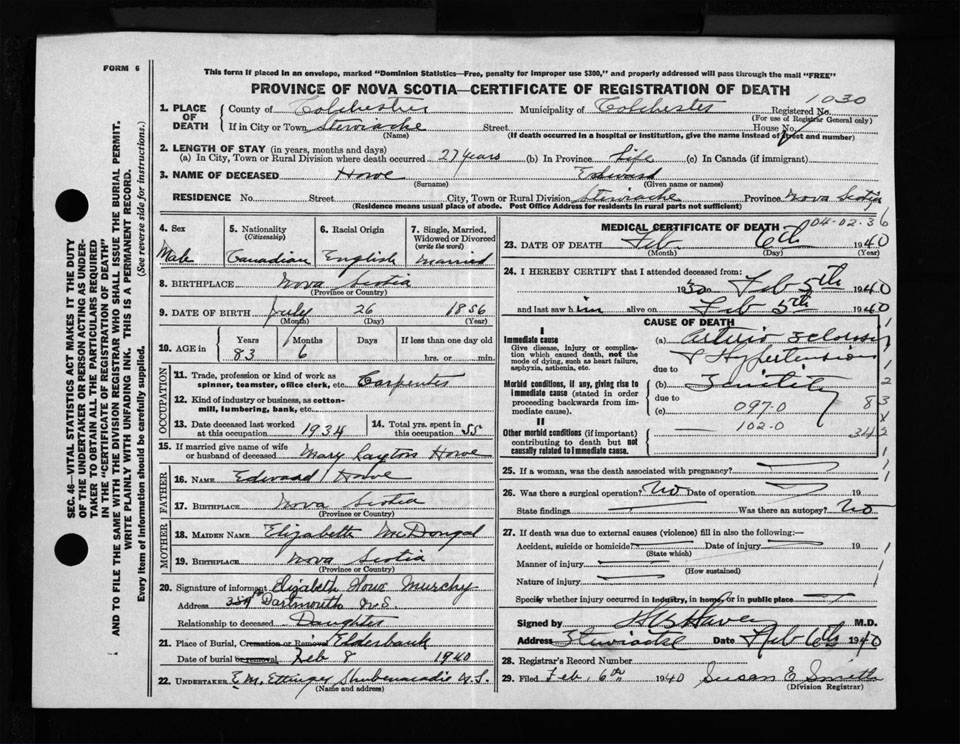 FORM 6
This form if placed in an envelope, marked "Dominion Statistics—Free, penalty for improper use $300," and properly addressed will pass through the mail "FREE"
PROVINCE OF NOVA SCOTIA—CERTIFICATE OF REGISTRATION OF DEATH
1030
1. PLACE OF DEATH
County of Colchester Municipality of Colchester Registered No.
(For use of Registrar General only)
If in City or Town Stewiacke Street House No.
(Name) (If death occurred in a hospital or institution, give the name instead of street and number)
2. LENGTH OF STAY (in years, months and days)
(a) In City, Town or Rural Division where death occurred 27 years (b) In Province Life (c) In Canada (if immigrant)
3. NAME OF DECEASED Howe Edward
(Surname) (Given name or names)
RESIDENCE No. Street City, Town or Rural Division Stewiacke Province Nova Scotia
(Residence means usual place of abode. Post Office Address for residents in rural parts not sufficient)
SEC. 46—VITAL STATISTICS ACT MAKES IT THE DUTY
OF THE UNDERTAKER OR PERSON ACTING AS UNDER-
TAKER TO OBTAIN ALL THE PARTICULARS REQUIRED
IN THE "CERTIFICATE OF REGISTRATION OF DEATH"
AND TO FILE THE SAME WITH THE DIVISION REGISTRAR WHO SHALL ISSUE THE BURIAL PERMIT.
WRITE PLAINLY WITH UNFADING INK. THIS IS A PERMANENT RECORD.
Every item of information should be carefully supplied. (See reverse side for instructions.)
4. Sex 5. Nationality (Citizenship) 6. Racial Origin 7. Single, Married, Widowed or Divorced (write the word)
Male Canadian English Married
8. BIRTHPLACE Nova Scotia
(Province or Country)
9. DATE OF BIRTH July 26 1856
(Month) (Day) (Year)
10. AGE in Years Months Days If less than one day old
83 6 hrs. or min.
OCCUPATION
11. Trade, profession or kind of work as spinner, teamster, office clerk, etc. Carpenter
12. Kind of industry or business, as cotton-mill, lumbering, bank, etc.
13. Date deceased last worked at this occupation 1934 14. Total yrs. spent in this occupation 55
15. If married give name of wife or husband of deceased Mary Layton Howe
FATHER
16. NAME Edward Howe
17. BIRTHPLACE Nova Scotia
(Province or Country)
MOTHER
18. MAIDEN NAME Elizabeth McDougal
19. BIRTHPLACE Nova Scotia
(Province or Country)
20. Signature of informant Elizabeth Howe Murchy
Address Dartmouth N.S.
Relationship to deceased Daughter
21. Place of Burial, Cremation or Removal Elderbank
Date of burial or removal Feb 8 1940
22. UNDERTAKER E.M. Ettinger Shubenacadie N.S.
(Name and address)
MEDICAL CERTIFICATE OF DEATH
04-02.36
23. DATE OF DEATH Feb 6th 1940
(Month) (Day) (Year)
24. I HEREBY CERTIFY that I attended deceased from:
Feb 5th 1940
and last saw him alive on Feb 5th 1940
CAUSE OF DEATH
I
Immediate cause
Give disease, injury or complication which caused death, not the mode of dying, such as heart failure, asphyxia, asthenia, etc.
(a)
& Hypertension
due to
Morbid conditions, if any, giving rise to immediate cause (stated in order proceeding backwards from immediate cause).
(b) Senility
due to
(c) 097.0
102.0
II
Other morbid conditions (if important) contributing to death but not causally related to immediate cause.
25. If a woman, was the death associated with pregnancy?
26. Was there a surgical operation? No Date of operation 19
State findings Was there an autopsy? No
27. If death was due to external causes (violence) fill in also the following:
Accident, suicide or homicide Date of injury 19
(State which)
Manner of injury
(How sustained)
Nature of injury
Specify whether injury occurred in industry, in home, or in public place
Signed by M.D.
Address Stewiacke Date Feb 6th 1940
28. Registrar's Record Number
29. Filed Feb. 6th 1940 Susan E Smith
(Division Registrar)